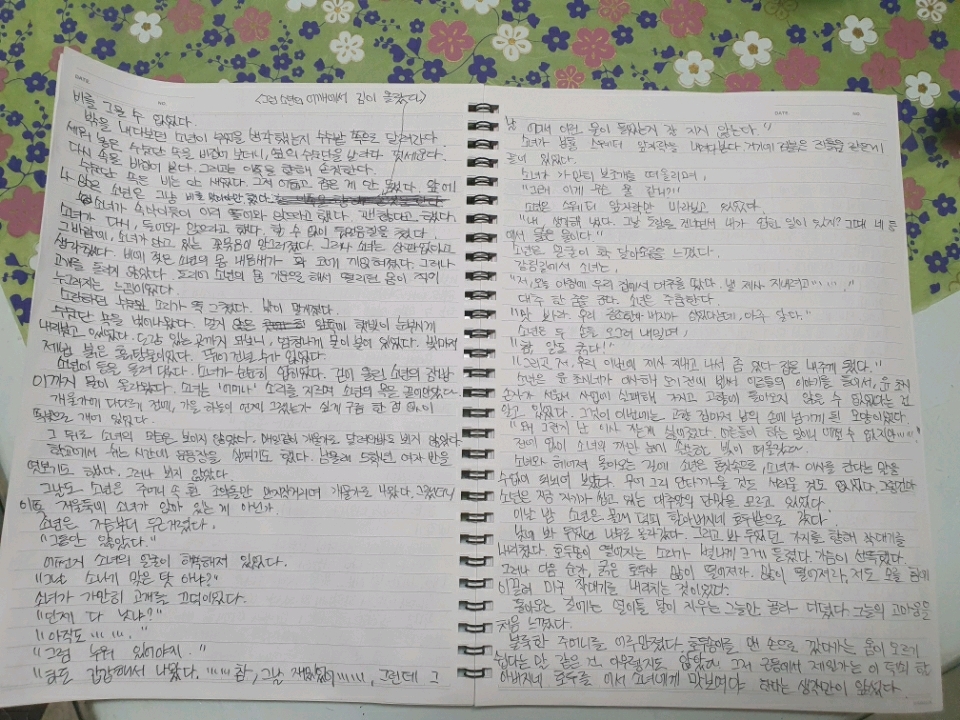 DATE
NO
<그런 소년의 어깨에서 김이 올랐다>
비를 그을 수 없었다.
밖을 내다보던 소년이 무엇을 생각했는지 수수밭 쪽으로 달려간다.
세워 놓은 수숫단 속을 비집어 보더니, 옆의 수숫단을 날라다 덧세운다.
다시 속을 비집어 본다. 그리고는 이쪽을 향해 손짓한다.
수숫단 속은 비는 안 새었다. 그저 어둡고 좁은 게 안 됐다. 앞에
나 앉은 소년은 그냥 비를 맞아야만 했다.
소녀가 속삭이듯이 이리 들어와 앉으라고 했다. 괜찮다고 했다.
소녀가 다시, 들어와 앉으라고 했다. 할 수 없이 뒷걸음질을 쳤다.
그 바람에, 소녀가 안고 있는 꽃묶음이 망그러졌다. 그러나 소녀는 상관없다고
생각했다. 비에 젖은 소년의 몸 내음새가 확 코에 끼얹혀졌다. 그러나
고개를 돌리지 않았다. 도리어 소년의 몸 기운으로 해서 떨리던 몸이 적이
누그러지는 느낌이었다.
소란하던 수숫잎 소리가 뚝 그쳤다. 밖이 멀개졌다.
수숫단 속을 벗어나왔다. 멀지 않은 앞쪽에 햇빛이 눈부시게
내리붓고 있었다. 도랑 있는 곳까지 와 보니, 엄청나게 물이 불어 있었다. 빛마저
제법 붉은 흙탕물이었다. 뛰어 건널 수가 없었다.
소년이 등을 돌려 댔다. 소녀가 순순히 업히었다. 걷어 올린 소년의 잠방
이까지 물이 올라왔다. 소녀는 '어머나' 소리를 지르며 소년의 목을 끌어안았다.
개울가에 다다르기 전에, 가을 하늘이 언제 그랬는가 싶게 구름 한 점 없이
쪽빛으로 개어 있었다.
그 뒤로 소녀의 모습은 보이지 않았다. 매일같이 개울가로 달려와봐도 뵈지 않았다.
학교에서 쉬는 시간에 운동장을 살피기도 했다. 남몰래 5학년 여자 반을
엿보기도 했다. 그러나 뵈지 않았다.
그날도 소년은 주머니 속 흰 조약돌만 만지작거리며 개울가로 나왔다. 그랬더니
이쪽 개울둑에 소녀가 앉아 있는 게 아닌가.
소년은 가슴부터 두근거렸다.
"그동안 앓았다."
어쩐지 소녀의 얼굴이 해쓱해져 있었다.
"그날 소나기 맞은 탓 아냐?"
소녀가 가만히 고개를 끄덕이었다.
"인제 다 낫냐?"
"아직도……."
"그럼 누워 있어야지."
"하도 갑갑해서 나왔다. ……참, 그날 재밌었어……, 그런데 그
DATE
NO
날 어디서 이런 물이 들었는지 잘 지지 않는다."
소녀가 분홍 스웨터 앞자락을 내려다본다. 거기에 검붉은 진흙물 같은 게
들어 있었다.
소녀가 가만히 보조개를 떠올리며,
"그래 이게 무슨 물 같니?"
소년은 스웨터 앞자락만 바라보고 있었다.
"내, 생각해 냈다. 그날 도랑을 건너면서 내가 업힌 일이 있지? 그때 네 등
에서 옮은 물이다."
소년은 얼굴이 확 달아오름을 느꼈다.
갈림길에서 소녀는,
"저, 오늘 아침에 우리 집에서 대추를 땄다. 낼 제사 지내려고……."
대추 한 줌을 준다. 소년은 주춤한다.
"맛 봐라. 우리 증조할아버지가 심었다는데, 아주 달다."
소년은 두 손을 오그려 내밀며,
"참, 알도 굵다!"
"그리고 저, 우리 이번에 제사 지내고 나서 좀 있다 집을 내주게 됐다."
소년은 소녀네가 이사해 오기 전에 벌써 어른들의 이야기를 들어서, 윤 초시
손자가 서울서 사업에 실패해 가지고 고향에 돌아오지 않을 수 없었다는 걸
알고 있었다. 그것이 이번에는 고향 집마저 남의 손에 넘기게 된 모양이었다.
"왜 그런지 난 이사 가는 게 싫어졌다. 어른들이 하는 일이니 어쩔 수 없지만……."
전에 없이 소녀의 까만 눈에 쓸쓸한 빛이 떠돌았다.
소녀와 헤어져 돌아오는 길에 소년은 혼잣속으로, 소녀가 이사를 간다는 말을
수없이 되뇌어 보았다. 무어 그리 안타까울 것도 서러울 것도 없었다. 그렇건만
소년은 지금 자기가 씹고 있는 대추알의 단맛을 모르고 있었다.
이날 밤 소년은 몰래 덕쇠 할아버지네 호두밭으로 갔다.
낮에 봐 두었던 나무로 올라갔다. 그리고 봐 두었던 가지를 향해 작대기를
내리쳤다. 호두송이 떨어지는 소리가 별나게 크게 들렸다. 가슴이 선뜩했다.
그러나 다음 순간, 굵은 호두야 많이 떨어져라, 많이 떨어져라, 저도 모를 힘에
이끌려 마구 작대기를 내려치는 것이었다.
돌아오는 길에는 열이틀 달이 지우는 그늘만 골라 디뎠다. 그늘의 고마움을
처음 느꼈다.
불룩한 주머니를 어루만졌다. 호두송이를 맨 손으로 깠다가는 옴이 오르기
쉽다는 말 같은 건 아무렇지도 않았다. 그저 근동에서 제일가는 이 덕쇠 할
아버지네 호두를 어서 소녀에게 맛보여야 한다는 생각만이 앞섰다.